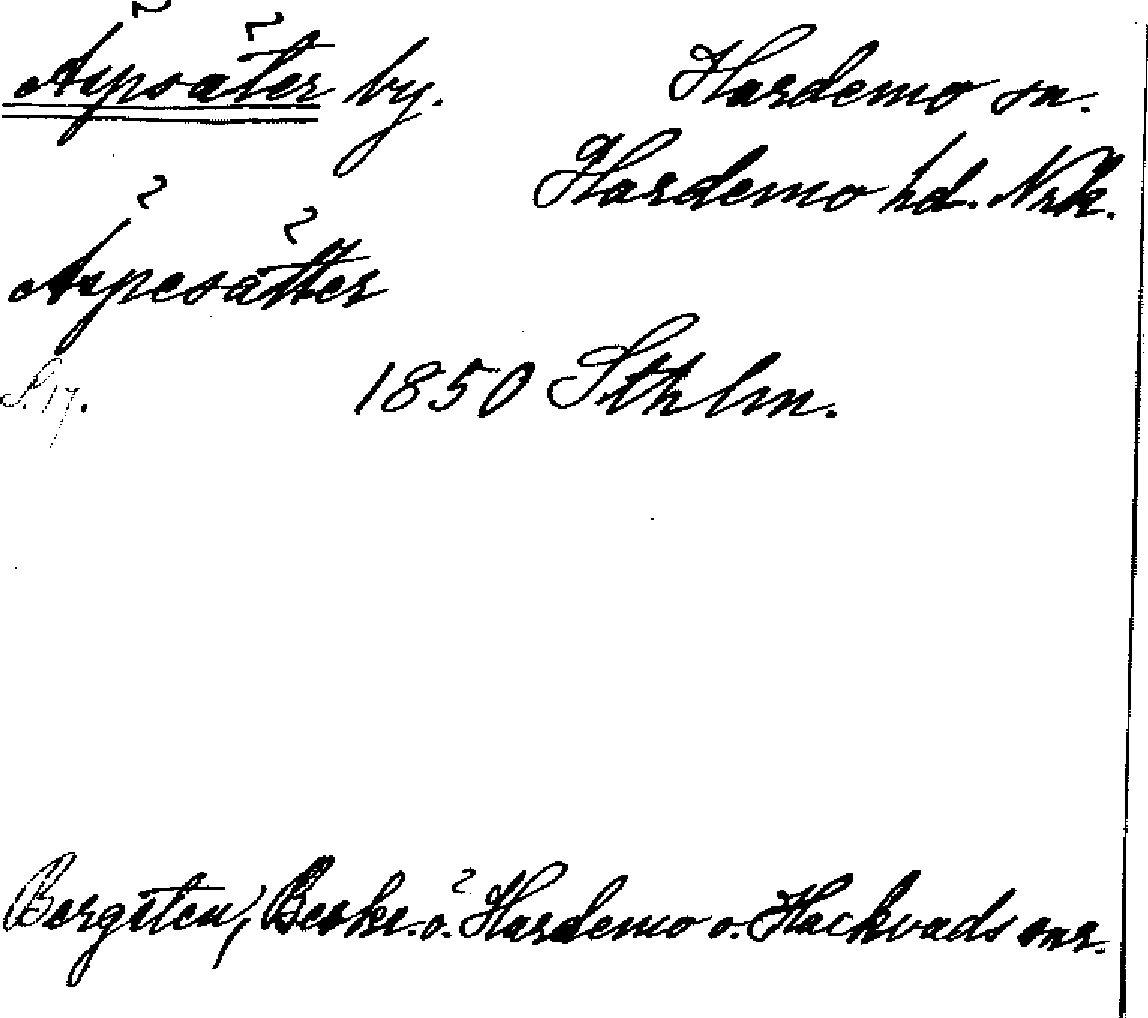 Ärpsäter by. Hardemo sn.
Hardemo hd. Nrk.
Ärpesätter
S. 17. 1850 Sthlm.
Bergsten, Beskr. ö. Hardemo o. Hackvads snr.